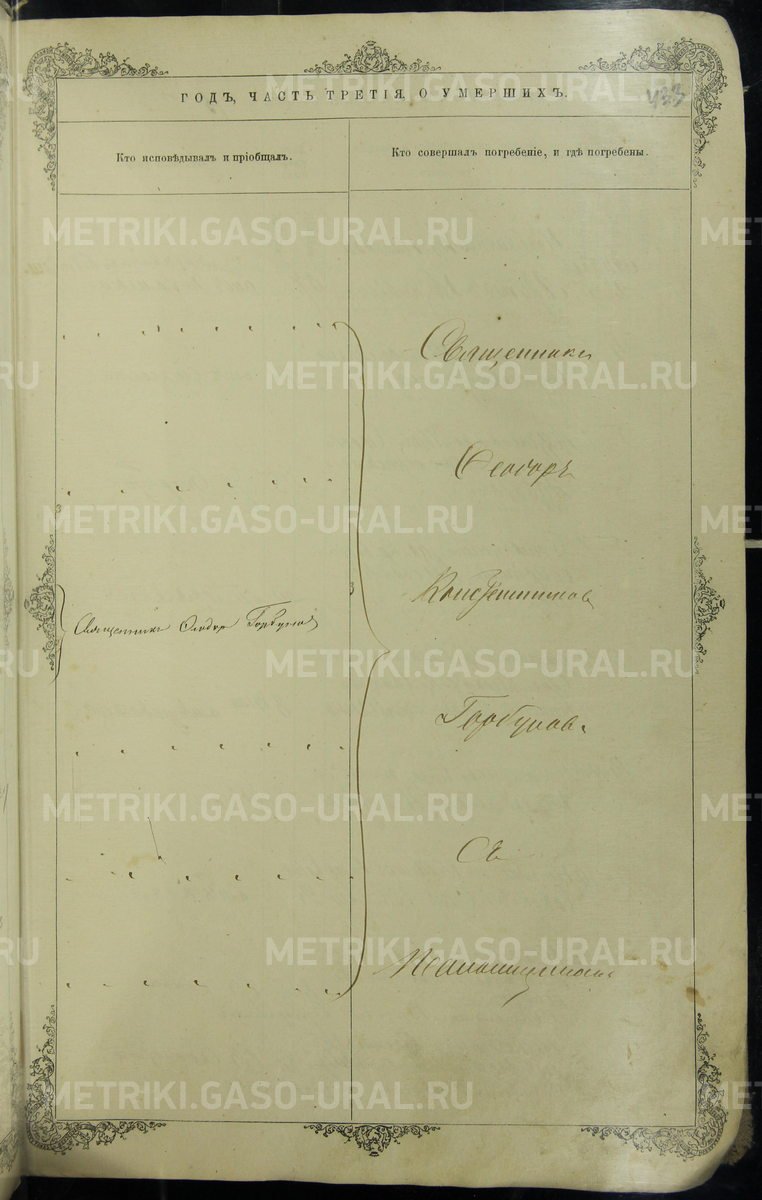 ГОДЪ, ЧАСТЬ ТРЕТІЯ, О УМЕРШИХЪ.
433
Кто исповѣдывалъ и пріобщалъ.
Кто совершалъ погребеніе, и гдѣ погребены.
METRIKI.GASO-URAL.RU
Священникъ
Ѳеодоръ
Священникъ Ѳеодоръ Горбуновъ
Горбуновъ.
Съ